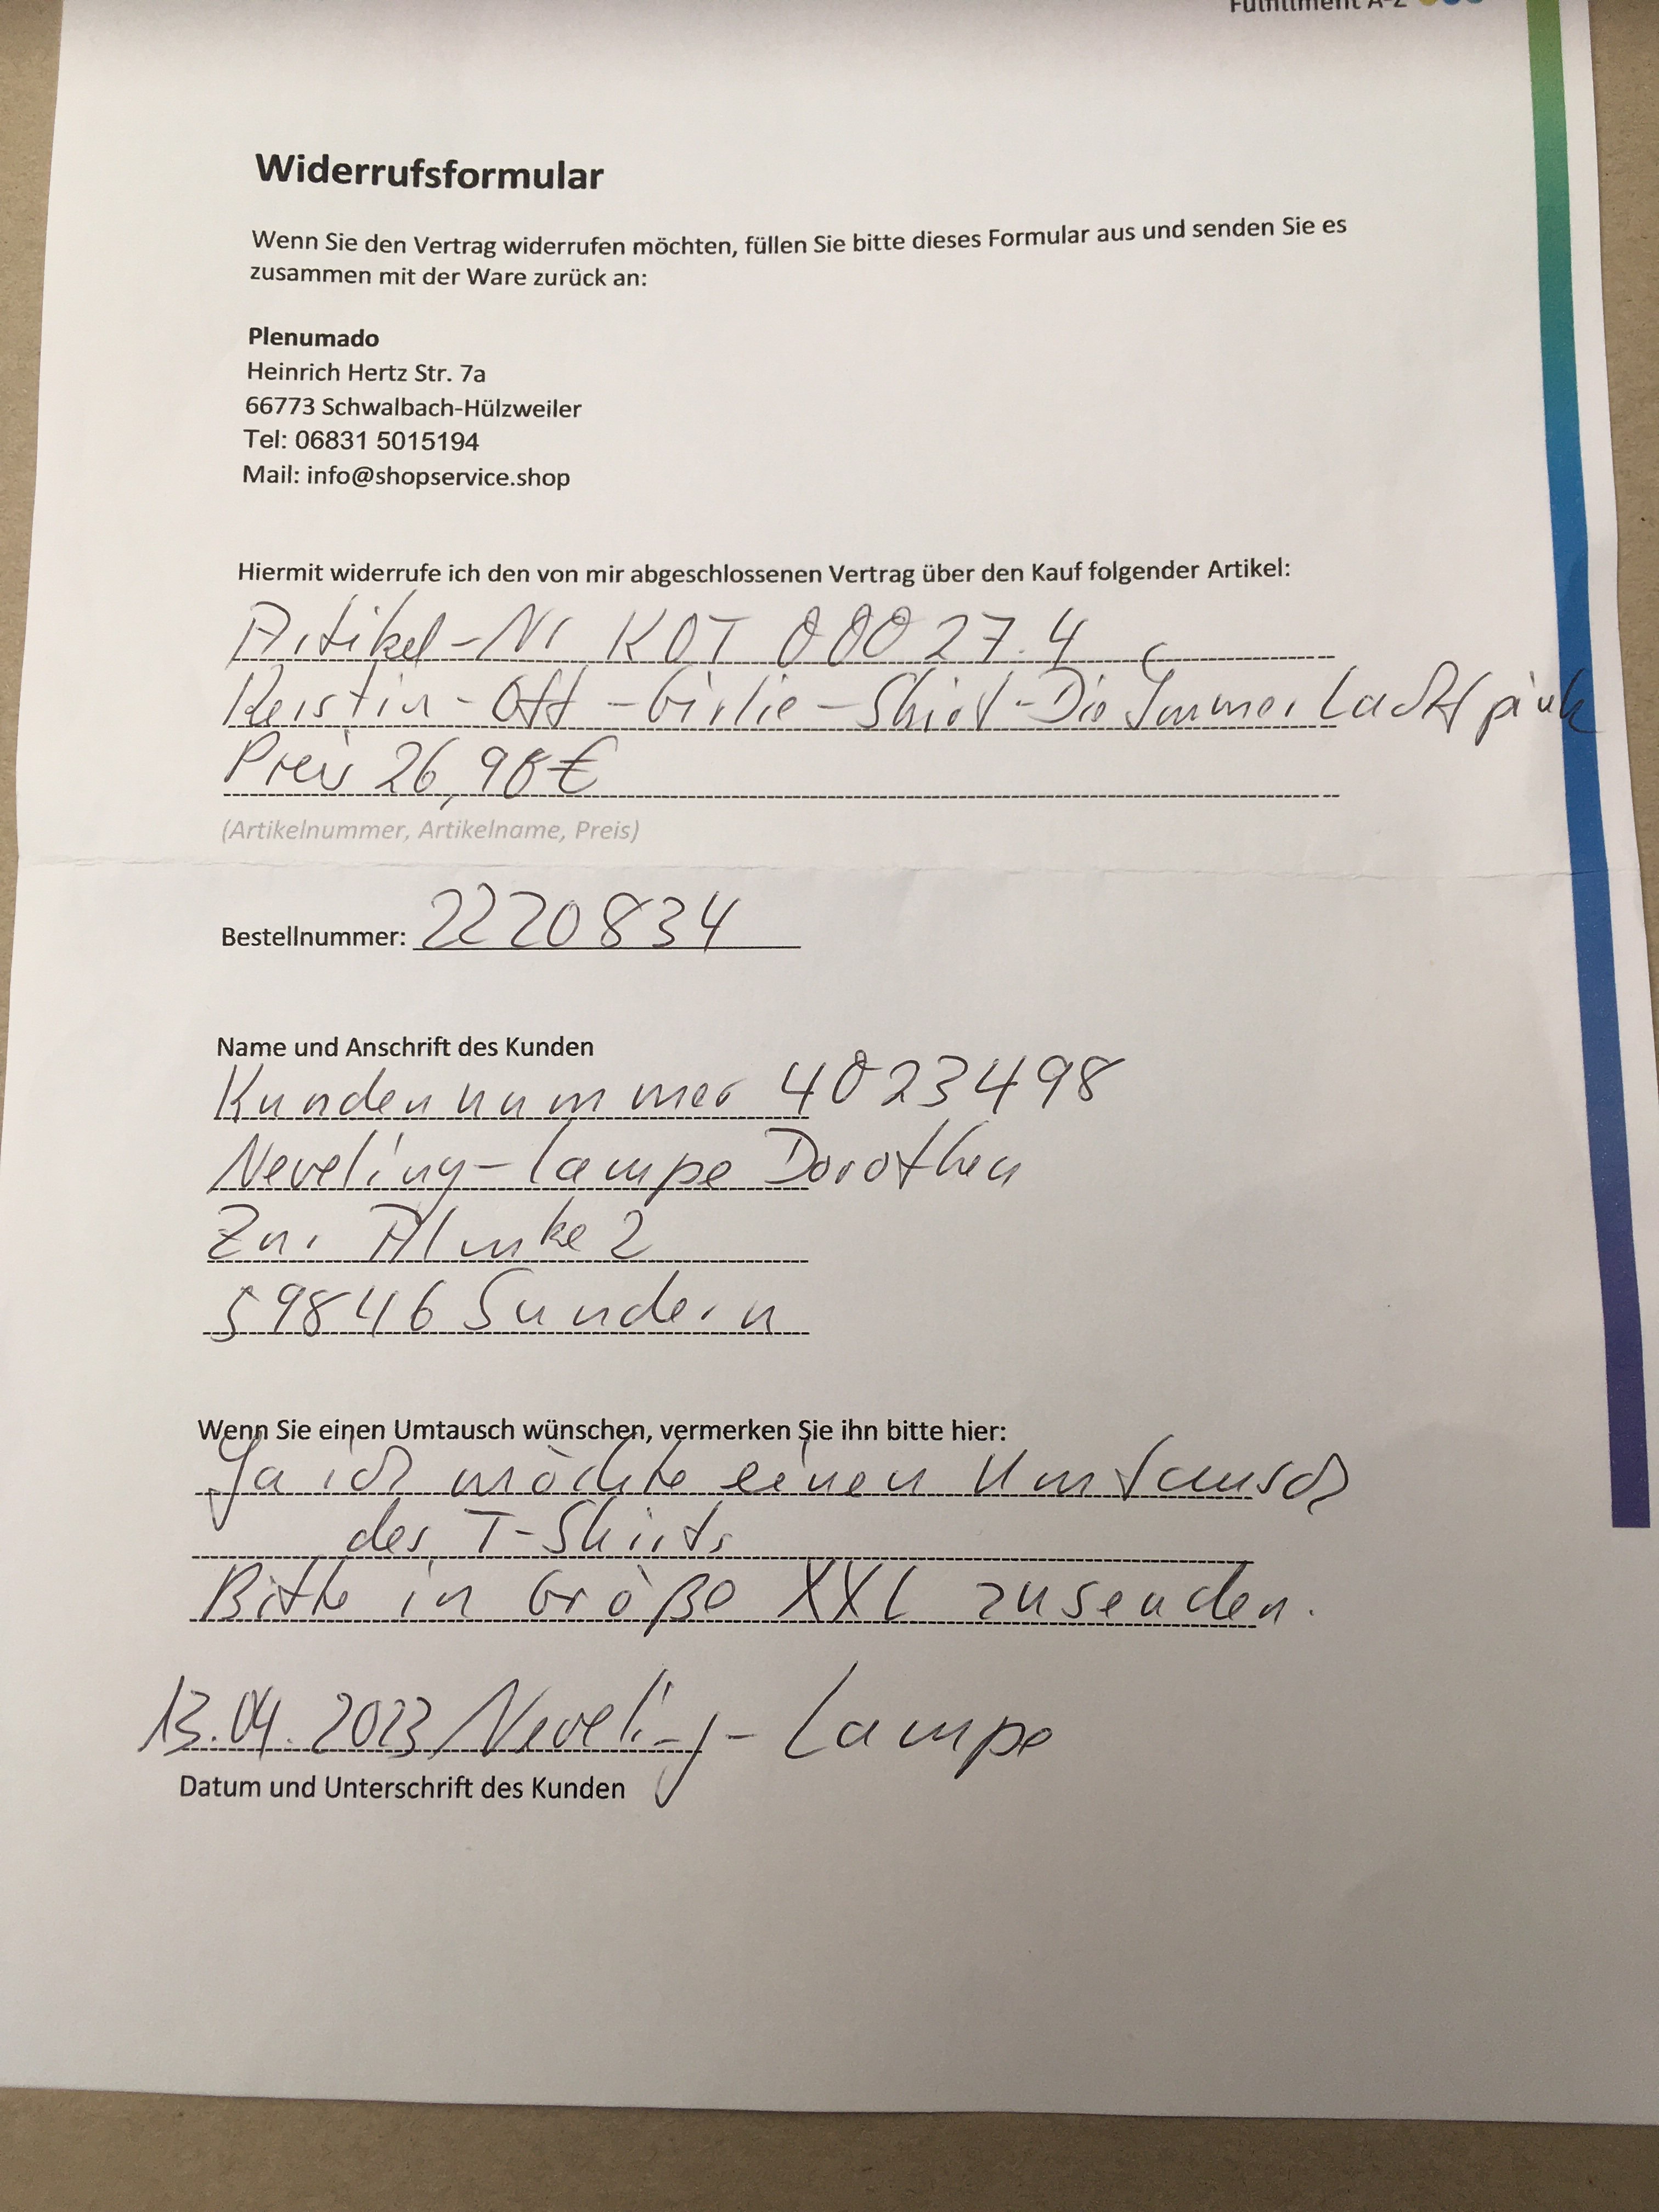 Fulfillment A-Z
Widerrufsformular
Wenn Sie den Vertrag widerrufen möchten, füllen Sie bitte dieses Formular aus und senden Sie es
zusammen mit der Ware zurück an:
Plenumado
Heinrich Hertz Str. 7a
66773 Schwalbach-Hülzweiler
Tel: 06831 5015194
Mail: info@shopservice.shop
Hiermit widerrufe ich den von mir abgeschlossenen Vertrag über den Kauf folgender Artikel:
Artikel-Nr KOT 00027.4
Kerstin-Ott-Girlie-Shirt-Die Immer Lacht pink
Preis 26,90€
(Artikelnummer, Artikelname, Preis)
Bestellnummer: 2220834
Name und Anschrift des Kunden
Kundennummer 4023498
Neveling-Lampe Dorothea
Zur 2
59846 Sundern
Wenn Sie einen Umtausch wünschen, vermerken Sie ihn bitte hier:
Ja ich möchte einen Umtausch
des T-Shirts
Bitte in Größe XXL zusenden.
13.04.2023 Neveling-Lampe
Datum und Unterschrift des Kunden